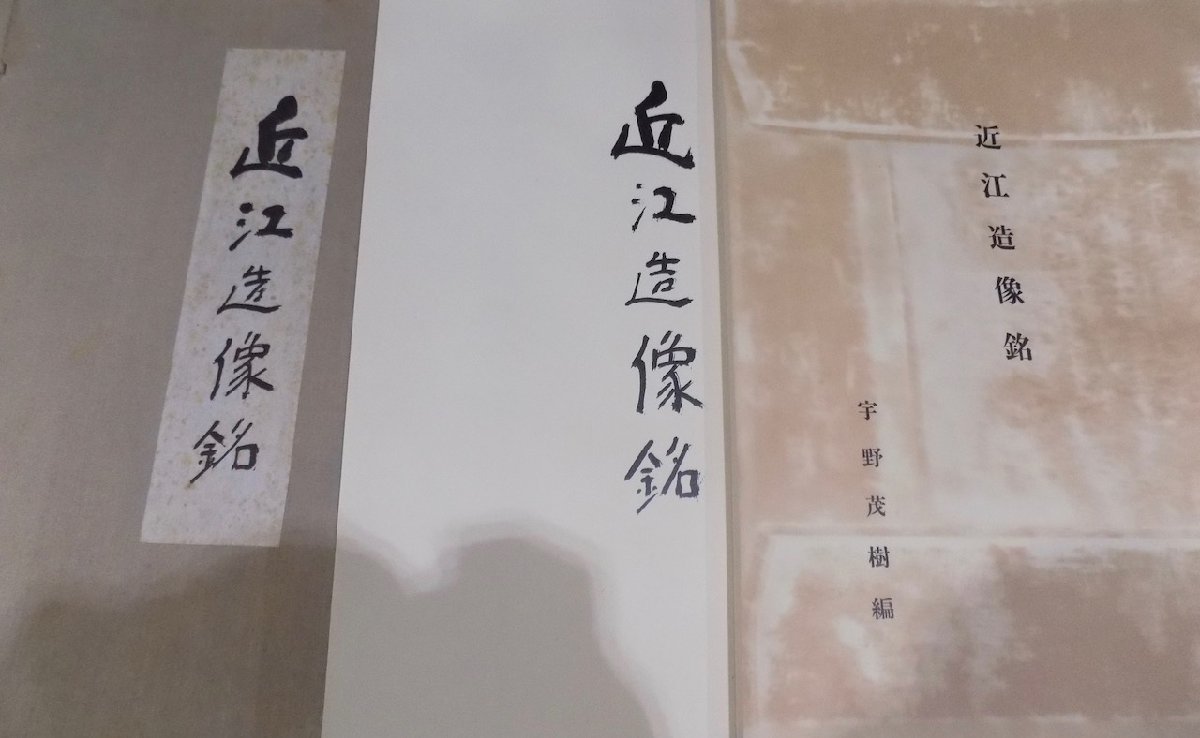 近江造像銘
近江造像銘
近江造像銘
宇野茂樹編